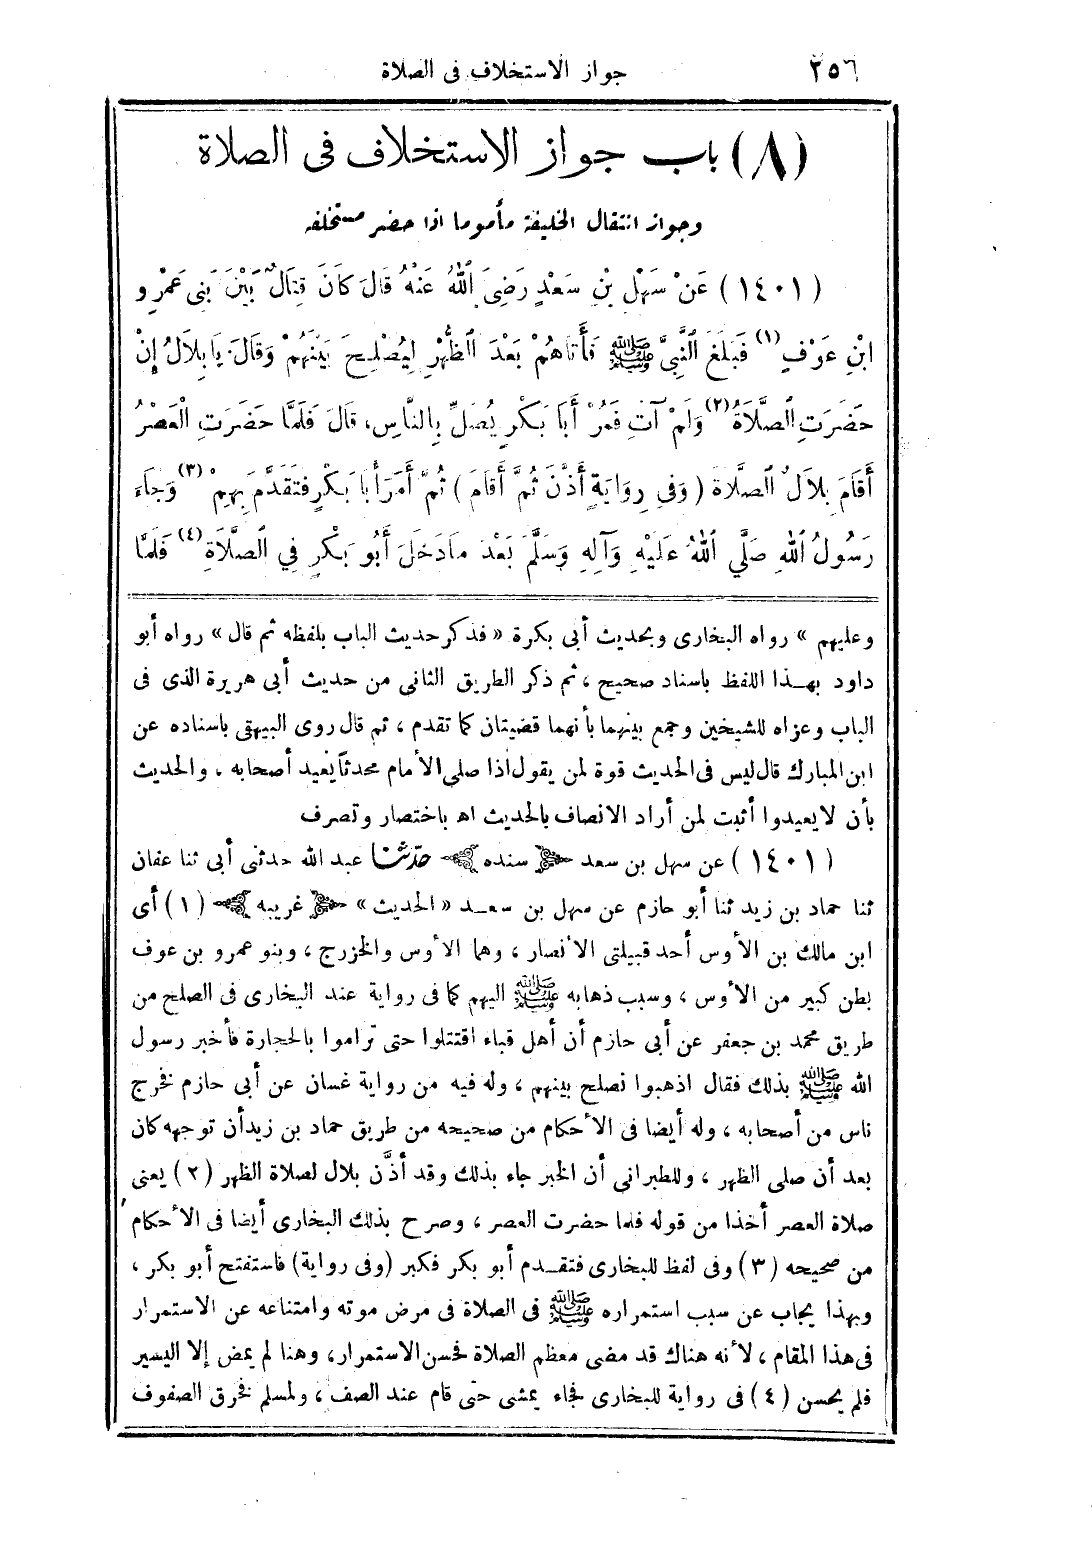 ٢٥٦ جواز الاستخلاف فى الصلاة
(٨) باب جواز الاستخلاف فى الصلاة
وجواز انتقال الخليفة مأموما اذا حضر مستخلفه
(١٤٠١) عَنْ سَهْلِ بْنِ سَعْدٍ رَضِيَ اللهُ عَنْهُ قَالَ كَانَ قِتَالٌ بَيْنَ بَنِى عَمْرِو
ابْنِ عَوْفٍ (١) فَبَلَغَ النَّبِيَّ ﷺ فَأَتَاهُمْ بَعْدَ الظُّهْرِ لِيُصْلِحَ بَيْنَهُمْ وَقَالَ يَا بِلَالُ إِنْ
حَضَرَتِ الصَّلَاةُ (٢) وَلَمْ آتِ فَمُرْ أَبَا بَكْرٍ يُصَلِّ بِالنَّاسِ، قَالَ فَلَمَّا حَضَرَتِ الْعَصْرُ
أَقَامَ بِلَالٌ الصَّلَاةَ (وَفِى رِوَايَةٍ أَذَّنَ ثُمَّ أَقَامَ) ثُمَّ أَمَرَ أَبَا بَكْرٍ فَتَقَدَّمَ بِهِمْ (٣) وَجَاءَ
رَسُولُ اللهِ صَلَّي اللهُ عَلَيْهِ وَآلِهِ وَسَلَّمَ بَعْدَ مَا دَخَلَ أَبُو بَكْرٍ فِي الصَّلَاةِ (٤) فَلَمَّا
وعليهم » رواه البخارى وبحديث أبى بكرة « فذكر حديث الباب بلفظه ثم قال » رواه أبو
داود بهذا اللفظ باسناد صحيح ، ثم ذكر الطريق الثانى من حديث أبى هريرة الذى فى
الباب وعزاه للشيخين وجمع بينهما بأنهما قضيتان كما تقدم ، ثم قال روى البيهقى باسناده عن
ابن المبارك قال ليس فى الحديث قوة لمن يقول اذا صلى الأمام محدثاً يعيد أصحابه ، والحديث
بأن لا يعيدوا أثبت لمن أراد الانصاف بالحديث اه باختصار وتصرف
(١٤٠١) عن سهل بن سعد سنده حدّثنا عبد الله حدثنى أبى ثنا عفان
ثنا حماد بن زيد ثنا أبو حازم عن سهل بن سعد « الحديث » غريبه (١) أى
ابن مالك بن الأوس أحد قبيلتى الأنصار ، وهما الأوس والخزرج ، وبنو عمرو بن عوف
بطن كبير من الأوس ، وسبب ذهابه ﷺ اليهم كما فى رواية عند البخارى فى الصلح من
طريق محمد بن جعفر عن أبى حازم أن أهل قباء اقتتلوا حتى تراموا بالحجارة فأخبر رسول
الله ﷺ بذلك فقال اذهبوا نصلح بينهم ، وله فيه من رواية غسان عن أبى حازم فخرج
ناس من أصحابه ، وله أيضا فى الأحكام من صحيحه من طريق حماد بن زيد أن توجهه كان
بعد أن صلى الظهر ، وللطبرانى أن الخبر جاء بذلك وقد أذَّن بلال لصلاة الظهر (٢) يعنى
صلاة العصر أخذا من قوله فلما حضرت العصر ، وصرح بذلك البخارى أيضا فى الأحكام
من صحيحه (٣) وفى لفظ للبخارى فتقدم أبو بكر فكبر (وفى رواية) فاستفتح أبو بكر ،
وبهذا يجاب عن سبب استمراره ﷺ فى الصلاة فى مرض موته وامتناعه عن الاستمرار
فى هذا المقام ، لأنه هناك قد مضى معظم الصلاة فحسن الاستمرار، وهنا لم يمض إلا اليسير
فلم يحسن (٤) فى رواية للبخارى فجاء يمشى حتى قام عند الصف ، ولمسلم فخرق الصفوف